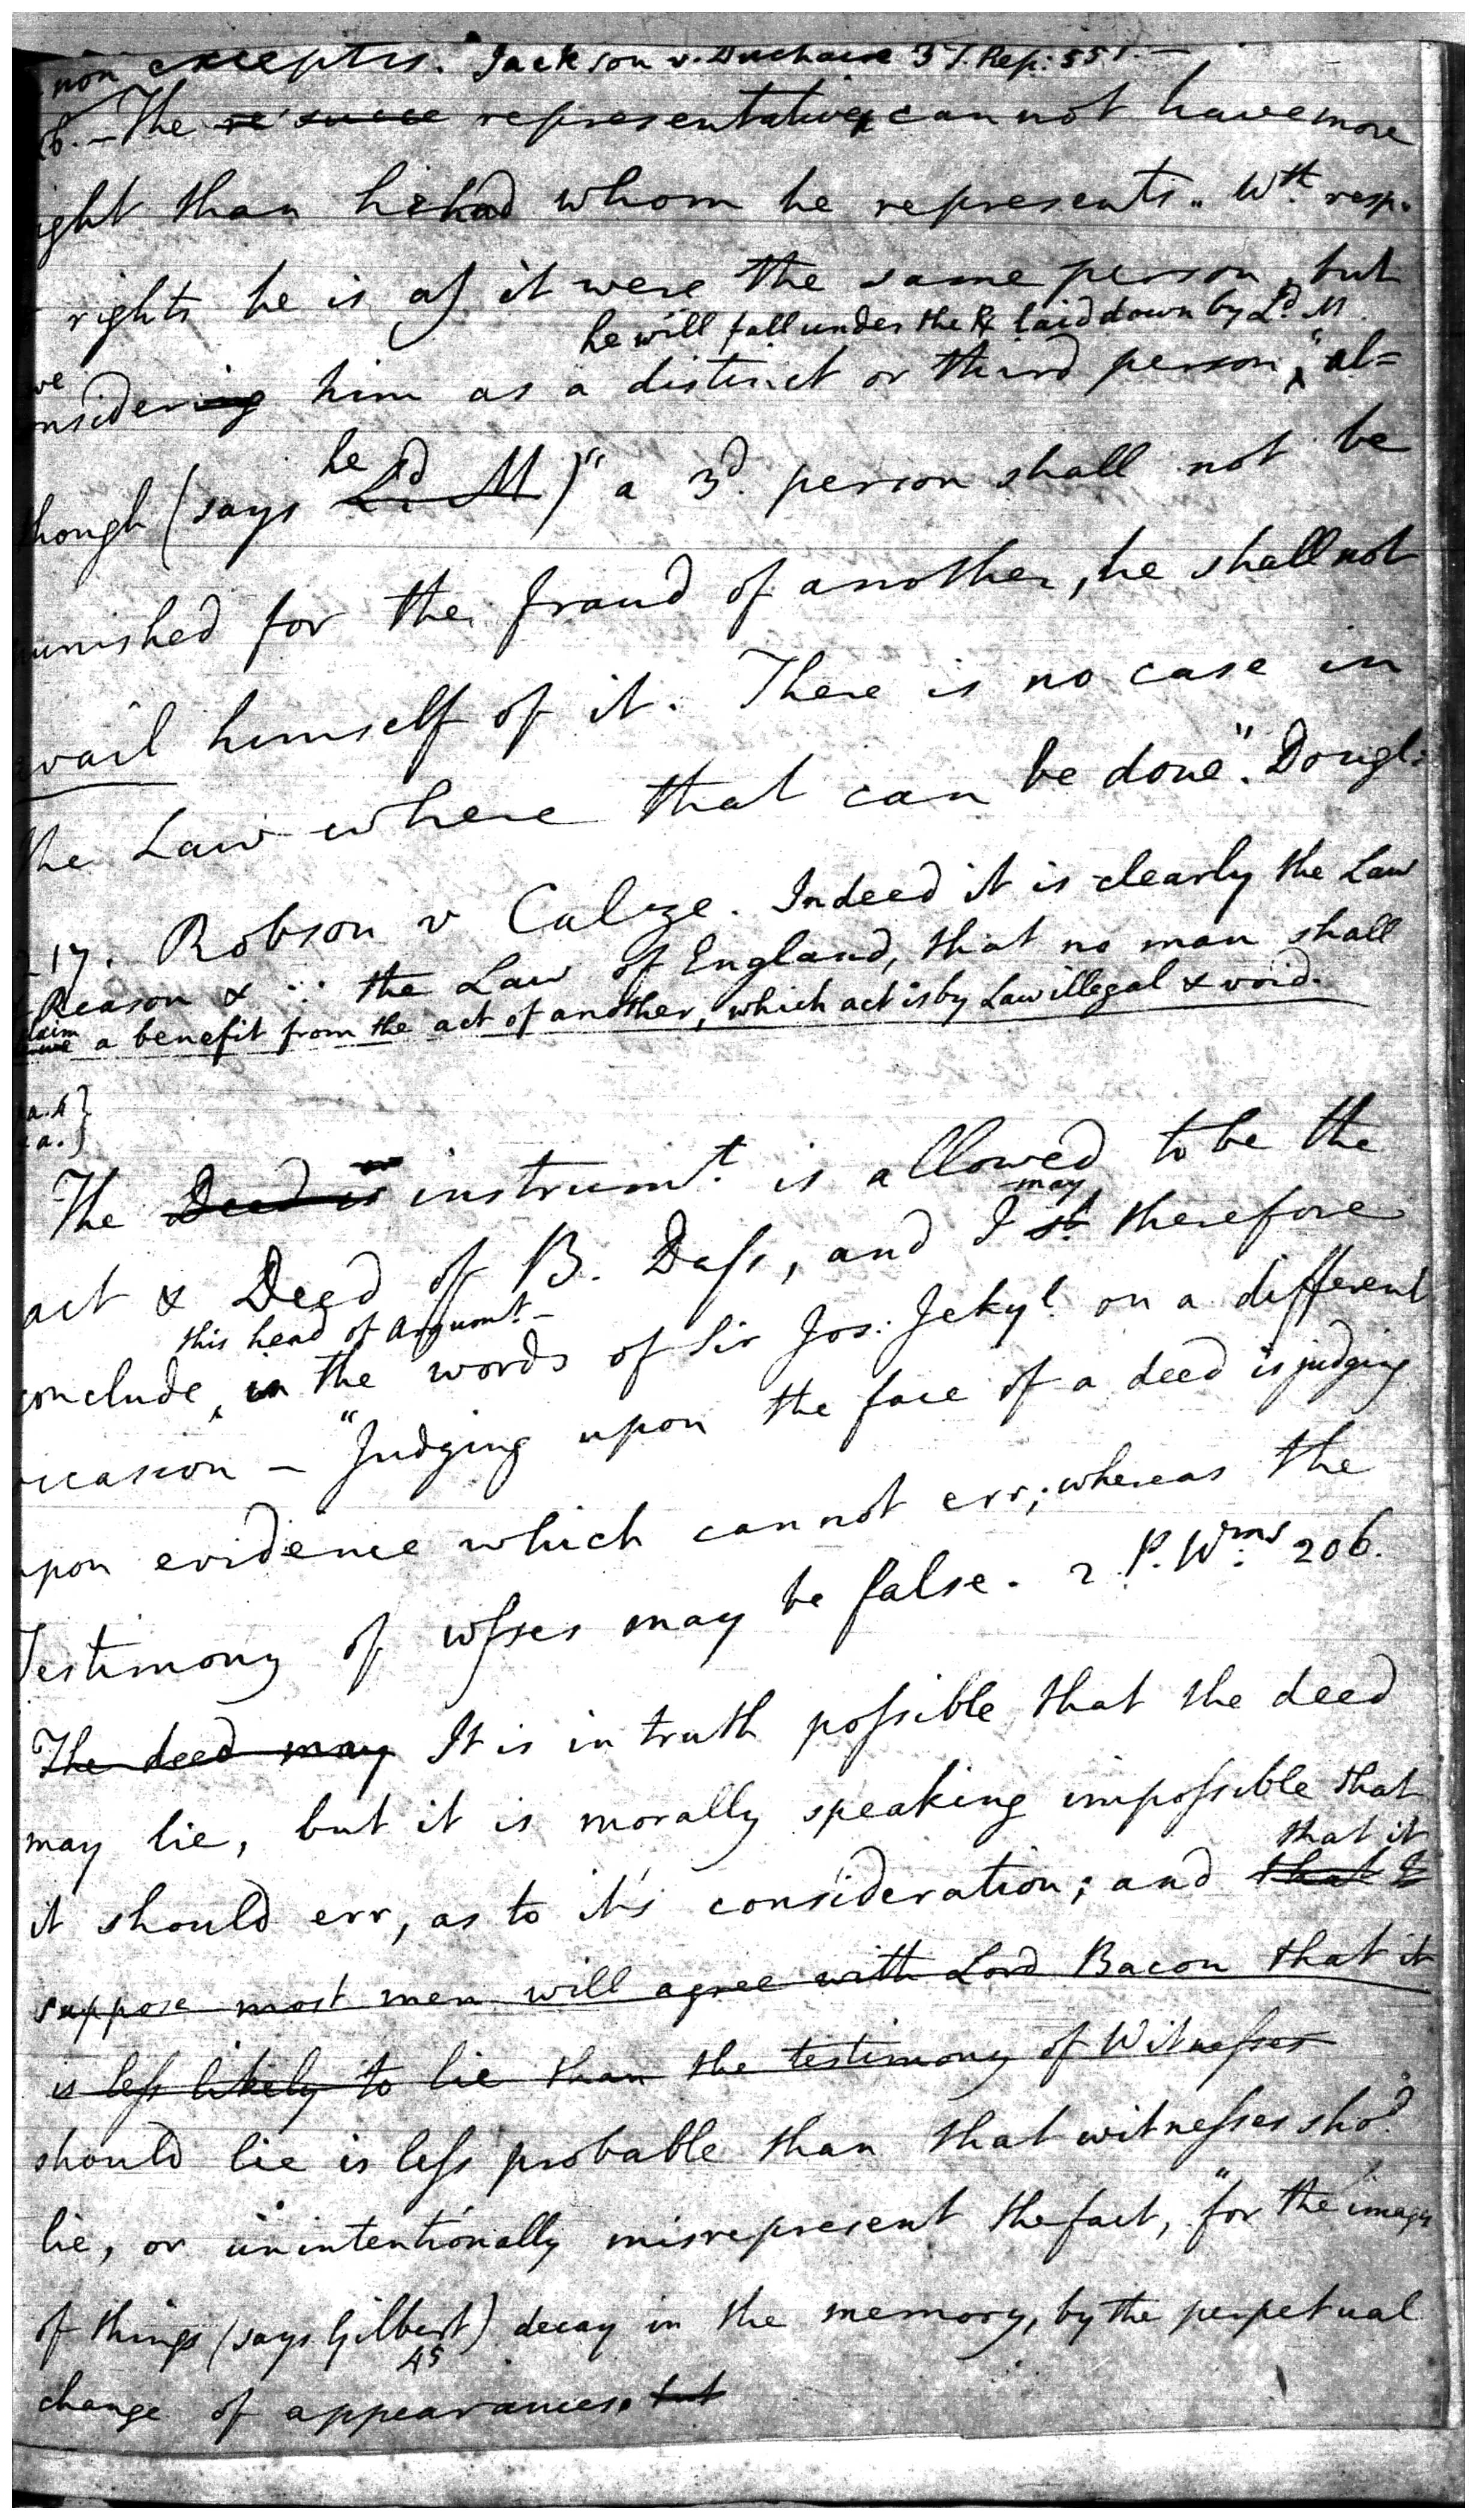 non exceptis. Jackson v. Duchaise 3 T. Rep: 551. —
— The re succe representative cannot have more
ight than he had whom he represents. Wth. resp.
rights he is as it were the same person, but
he will fall under the R laid down by Ld. M.
we
nsidering him as a distinct or third person, "al=
he
though (says Ld M)" a 3d. person shall not be
punished for the fraud of another, he shall not
avail himself of it. There is no case in
the Law where that can be done". Dougl:
217. Robson v Calze. Indeed it is clearly the Law
Reason & ∵ the Law of England, that no man shall
claim a benefit from the act of another, which act is by Law illegal & void.
The Deed is instrumt. is allowed to be the
may
act & Deed of B. Daſs, and I sh therefore
this head of Argumt. —
conclude, in the words of Sir Jos: Jekyl on a different
occasion — "Judging upon the face of a deed is judging
upon evidence which cannot err; whereas the
Testimony of wſses may be false. 2 P. Wms. 206.
The deed may It is in truth poſsible that the deed
may lie, but it is morally speaking impoſsible that
that it
it should err, as to it's consideration; and that I
suppose most men will agree with Lord Bacon that it
is leſs likely to lie than the testimony of Witneſses
should lie is leſs probable than that witneſses shod.
lie, or unintentionally misrepresent the fact, "for the images
of things (says Gilbert) decay in the memory, by the perpetual
45
change of appearances. but